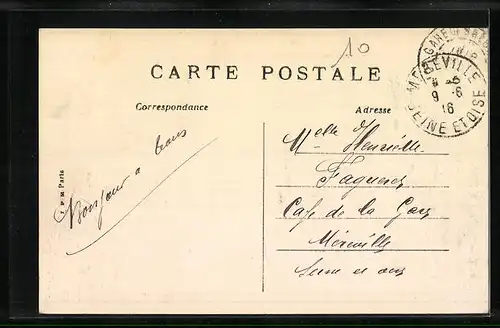 10
CARTE POSTALE
Correspondance
Adresse
MEREVILLE
9 - 8
16
SEINE ET OISE
Bonjour a tous
Melle Henriette
Café de la Gare
Méréville
Seine et oise
Paris